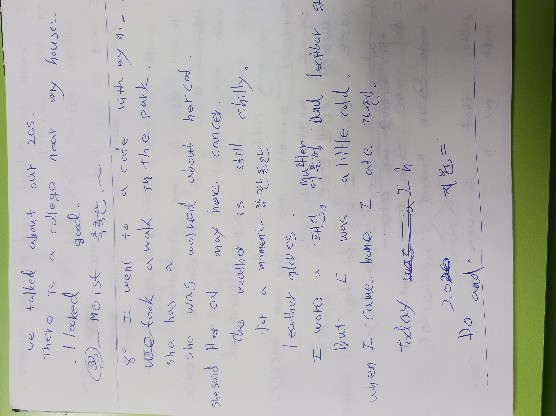 we talked about our 20s.
There is a college near my house.
I looked good.
moist 촉촉한
8° I went to a cafe with my
We took a walk in the park.
she has a
she was worried about her cat.
she said Her cat may have cancer.
The weather is still chilly.
for a moment 잠깐동안
leather gloves.
I wore a muffler and leather
But I was a little cold.
when I came home I ate
Today was
Do and